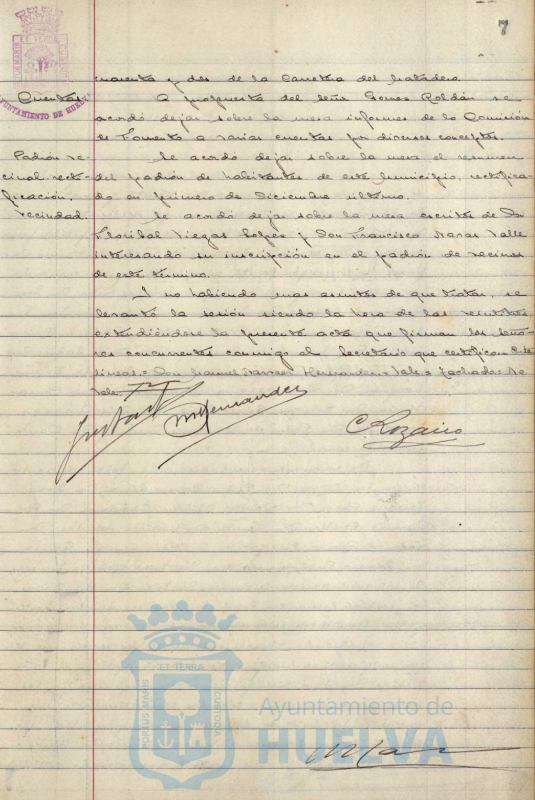 7
PORTUS MARIS ET TERRAE CUSTODIA
AYUNTAMIENTO DE HUELVA
cuarenta y dos de la Carretera del Matadero.
Cuentas
A propuesta del señor Gomez Roldán se
acordó dejar sobre la mesa informes de la Comisión
de Fomento a varias cuentas por diversos conceptos.
Padrón ve-
cinal rectificación.
Se acordó dejar sobre la mesa el resumen
del padrón de habitantes de este Municipio, rectifica-
do en primero de Diciembre último.
Vecindad.
Se acordó dejar sobre la mesa escritos de Don
Floribal Viegas Lopes y Don Francisco Navas Valle
interesando su inscripción en el padrón de vecinos
de este término.
Y no habiendo mas asuntos de que tratar, se
levantó la sesión siendo la hora de las
extendiéndose la presente acta que firman los seño-
res concurrentes conmigo el Secretario que certifico.=
lineas.= Don Manuel Hernandez.= Vale.= Tachado=
Vale.
M Hernandez
C. Lozano
PORTUS MARIS ET TERRÆ CUSTODIA
Ayuntamiento de
HUELVA